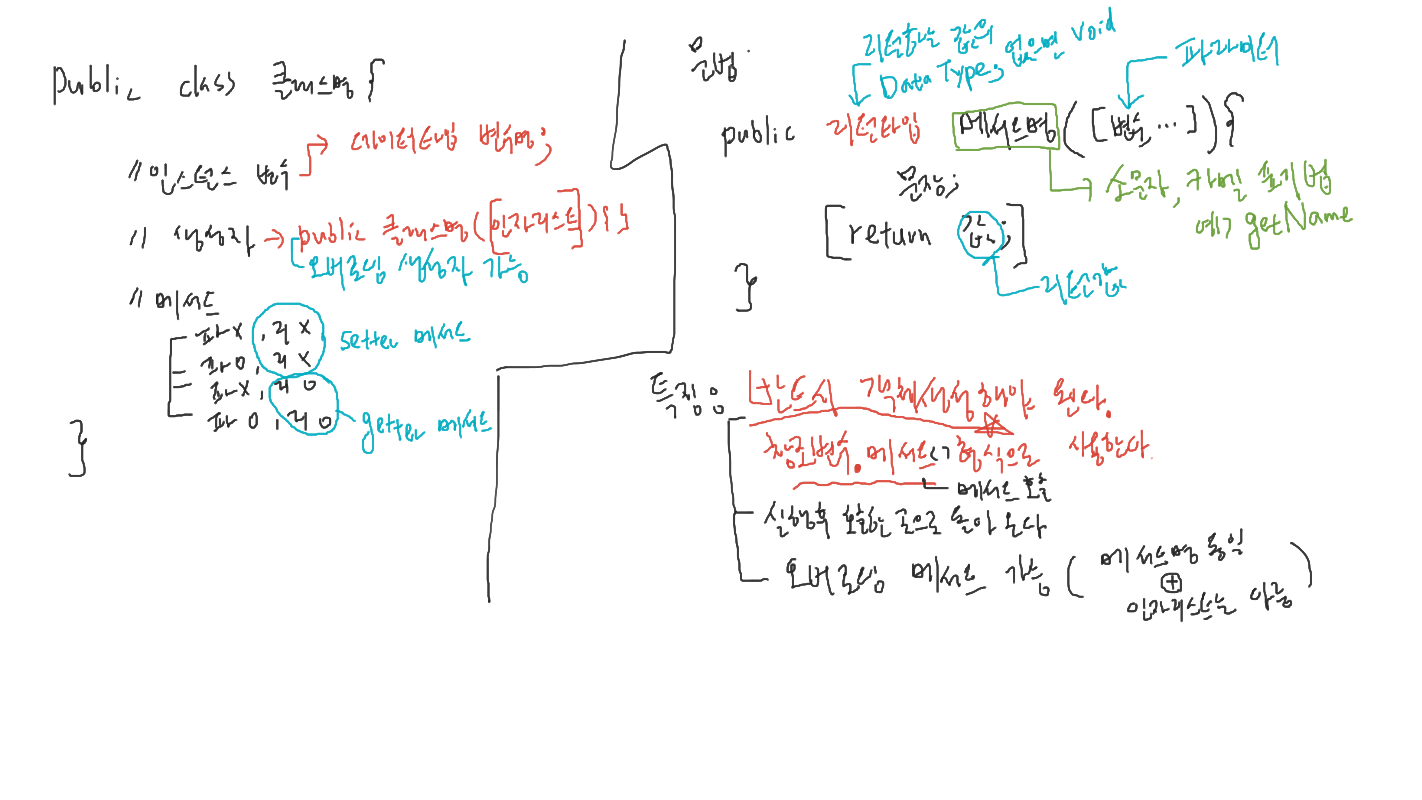 public class 클래스명 {
// 인스턴스 변수 → 데이터타입 변수명;
// 생성자 → public 클래스명([인자리스트]){ }
오버로딩 생성자 가능
// 메서드
파 X, 리 X
파 O, 리 X
setter 메서드
파 X, 리 O
파 O, 리 O
getter 메서드
}
문법
리턴하는 값의
Data Type, 없으면 void
파라미터
public 리턴타입 메서드명([변수, ...]) {
문장;
소문자, 카멜 표기법
예> getName
[return 값;]
리턴값
}
특징
반드시 객체생성해야 된다.
참조변수.메서드() 형식으로 사용한다.
메서드 호출
실행후 호출한 곳으로 돌아 온다
오버로딩 메서드 가능 (메서드명 동일
+
인자리스트는 다름)